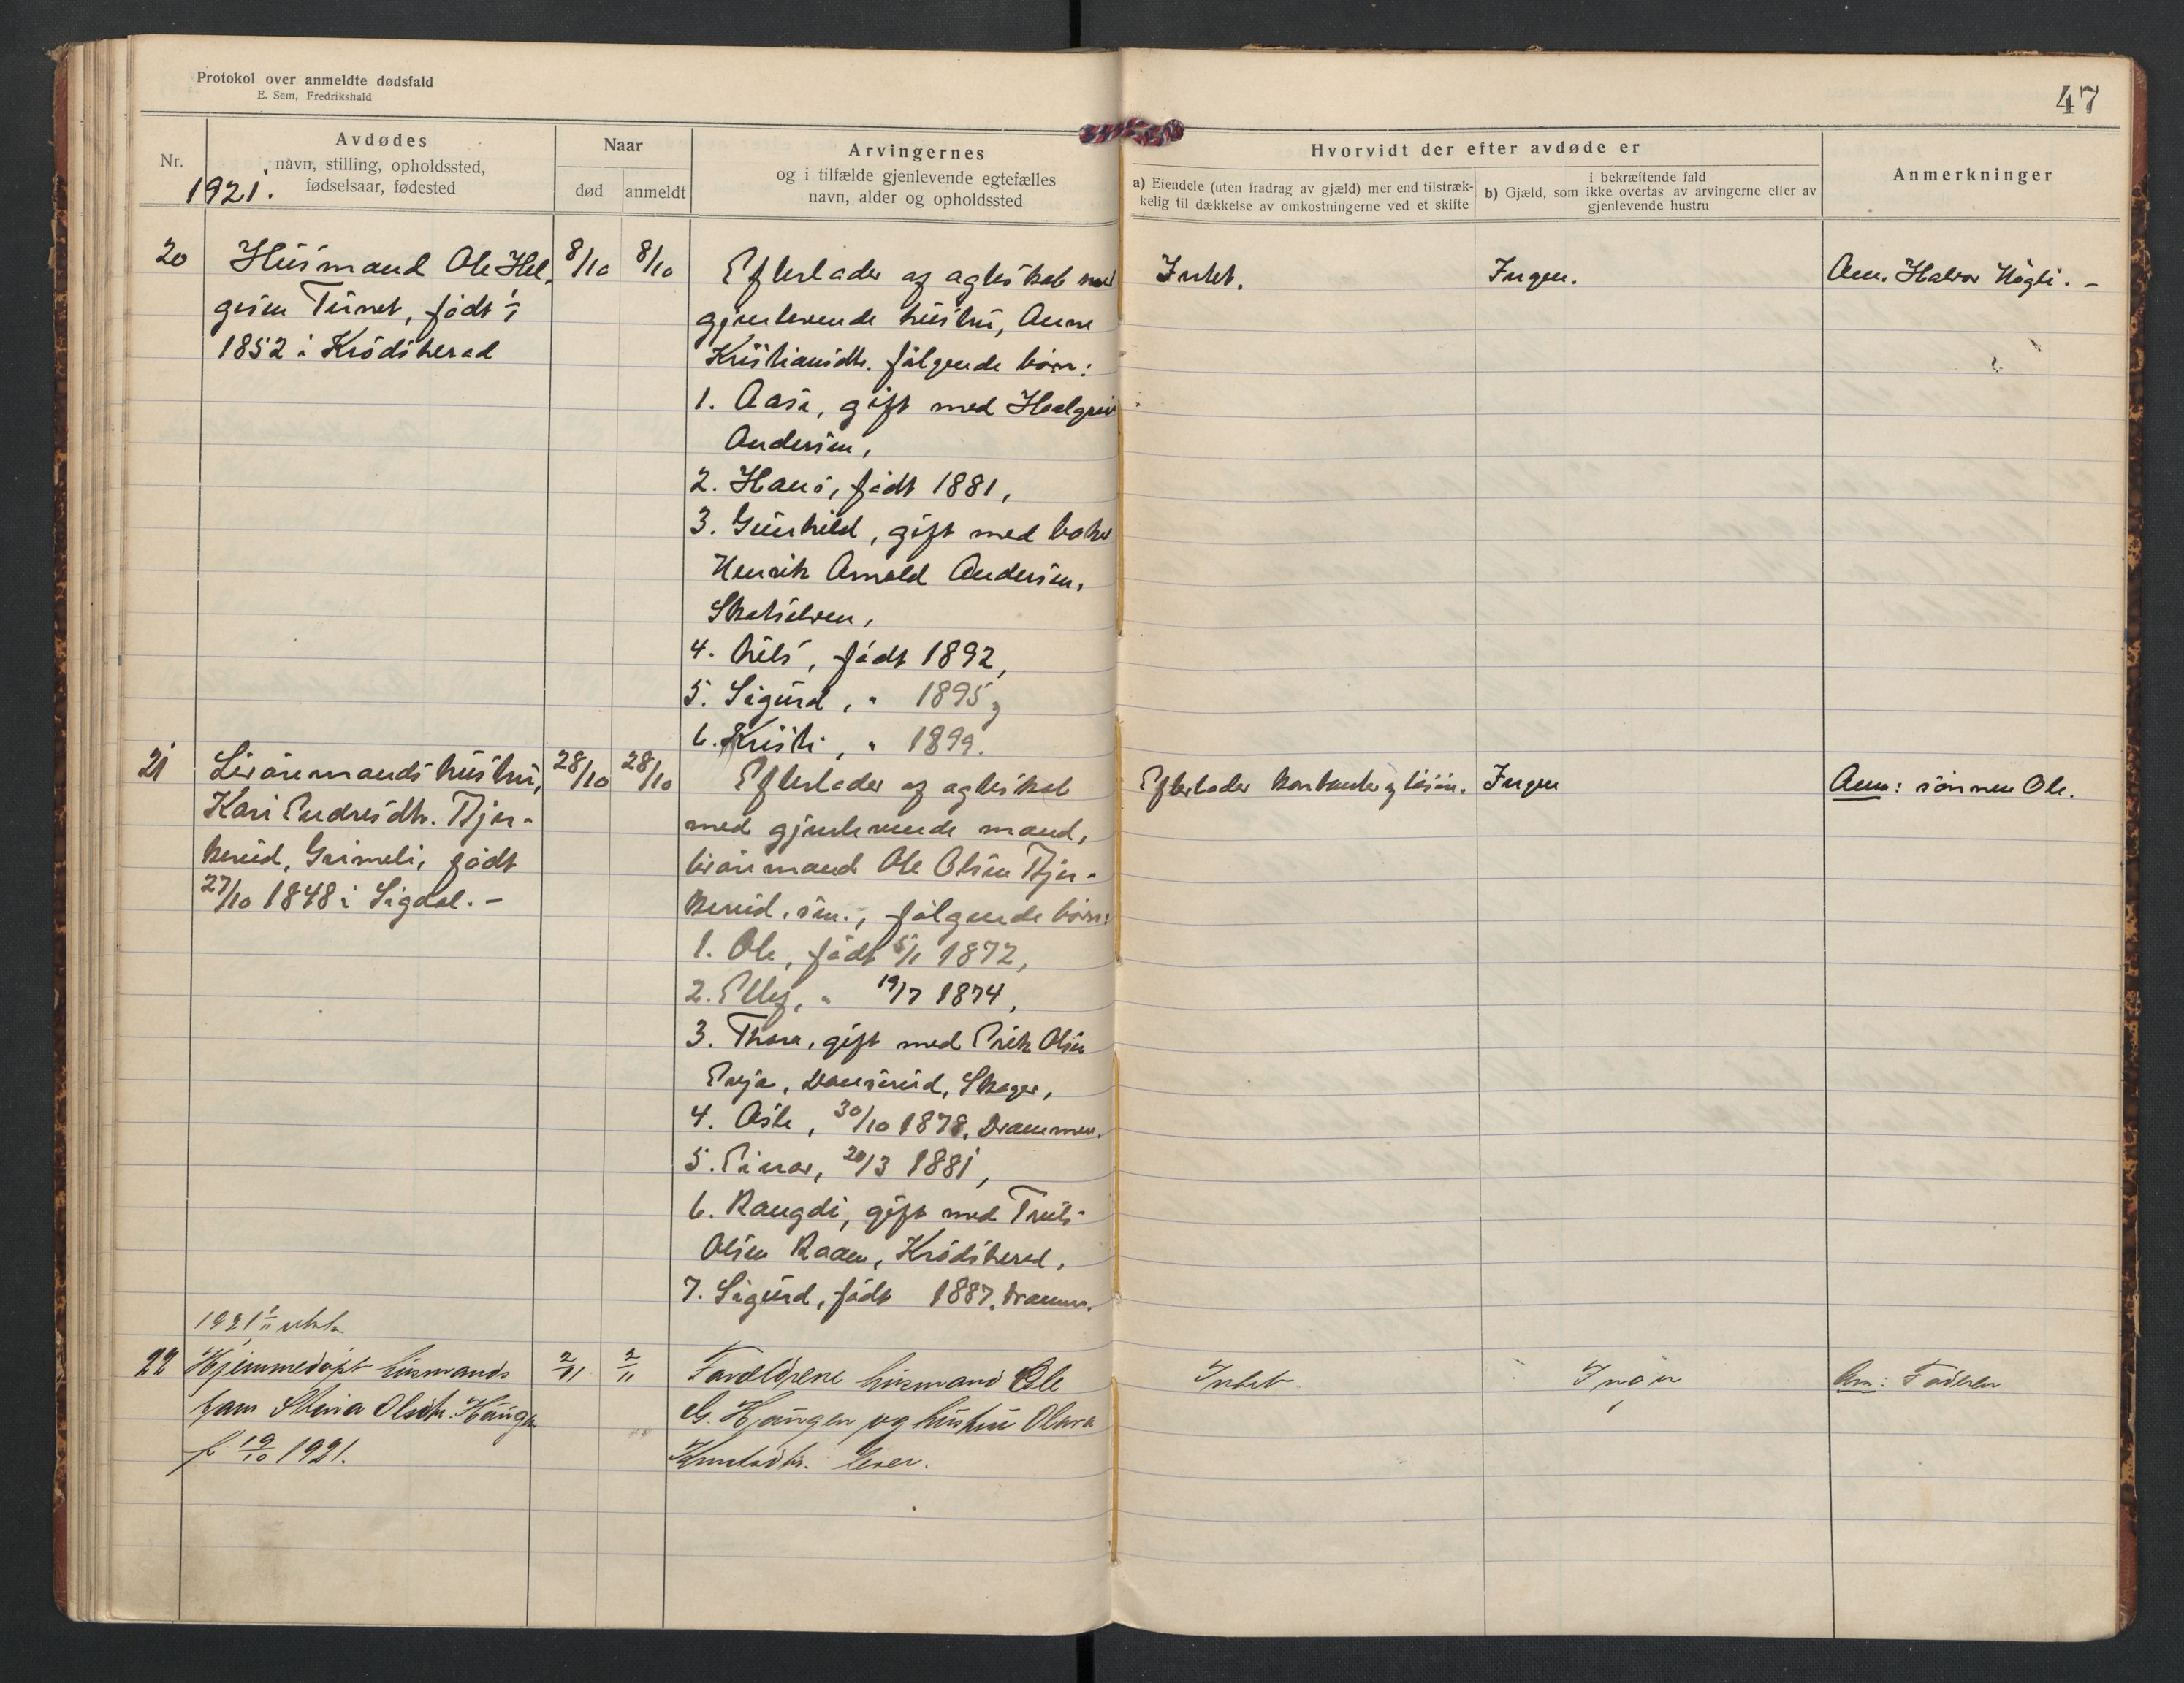 Protokol over anmeldte dødsfald
E. Sem, Fredrikshald
47
Nr.
1921.
Avdødes
navn, stilling, opholdssted,
fødselsaar, fødested
Naar
død
anmeldt
Arvingernes
og i tilfælde gjenlevende egtefælles
navn, alder og opholdssted
Hvorvidt der efter avdøde er
a) Eiendele (uten fradrag av gjæld) mer end tilstræk-
kelig til dækkelse av omkostningerne ved et skifte
i bekræftende fald
b) Gjæld, som ikke overtas av arvingerne eller av
gjenlevende hustru
Anmerkninger
20
Husmand Ole Hel-
gesen Tunet, født
1852 i Krødsherad
8/10
8/10
Efterlader og egteskab med
gjenlevende hustru, Anne
Kristiansdtr. følgende børn:
1. Aase, gift med
Andersen,
2. Hans, født 1881,
3. Gunhild, gift med baker
Henrik Arnold Andersen,
Skotselven,
4. Nils, født 1892,
5. Sigurd, " 1895 og
6. Kristi, " 1899.
Intet.
Ingen.
Anm. Halvor Høgli. -
21
hustru,
Kari Endresdtr. Bjer-
kerud, Grimeli, født
27/10 1848 i Sigdal. -
28/10
28/10
Efterlader og egteskab
med gjenlevende mand,
Ole Olsen Bjer-
kerud, sen., følgende børn:
1. Ole, født 5/1 1872,
2. Ellef, " 19/7 1874,
3. Thora, gift med Erik Olsen
Enja, Skoger,
4. Asle, 30/10 1878, Drammen.
5. Einar, 20/3 1881,
6. Rangdi, gift med Truls
Olsen Raaen, Krødsherad,
7. Sigurd, født 1887, Drammen.
Efterlader og løsøre.
Ingen
Anm: sønnen Ole.
1921
22
Hjemmedøpt husmands
barn Stina Olsdtr.
f 19/10 1921.
2/11
2/11
Foreldrene husmand Ole
G. og hustru
Knutsdtr. lever.
Intet
Ingen
Anm: Faderen